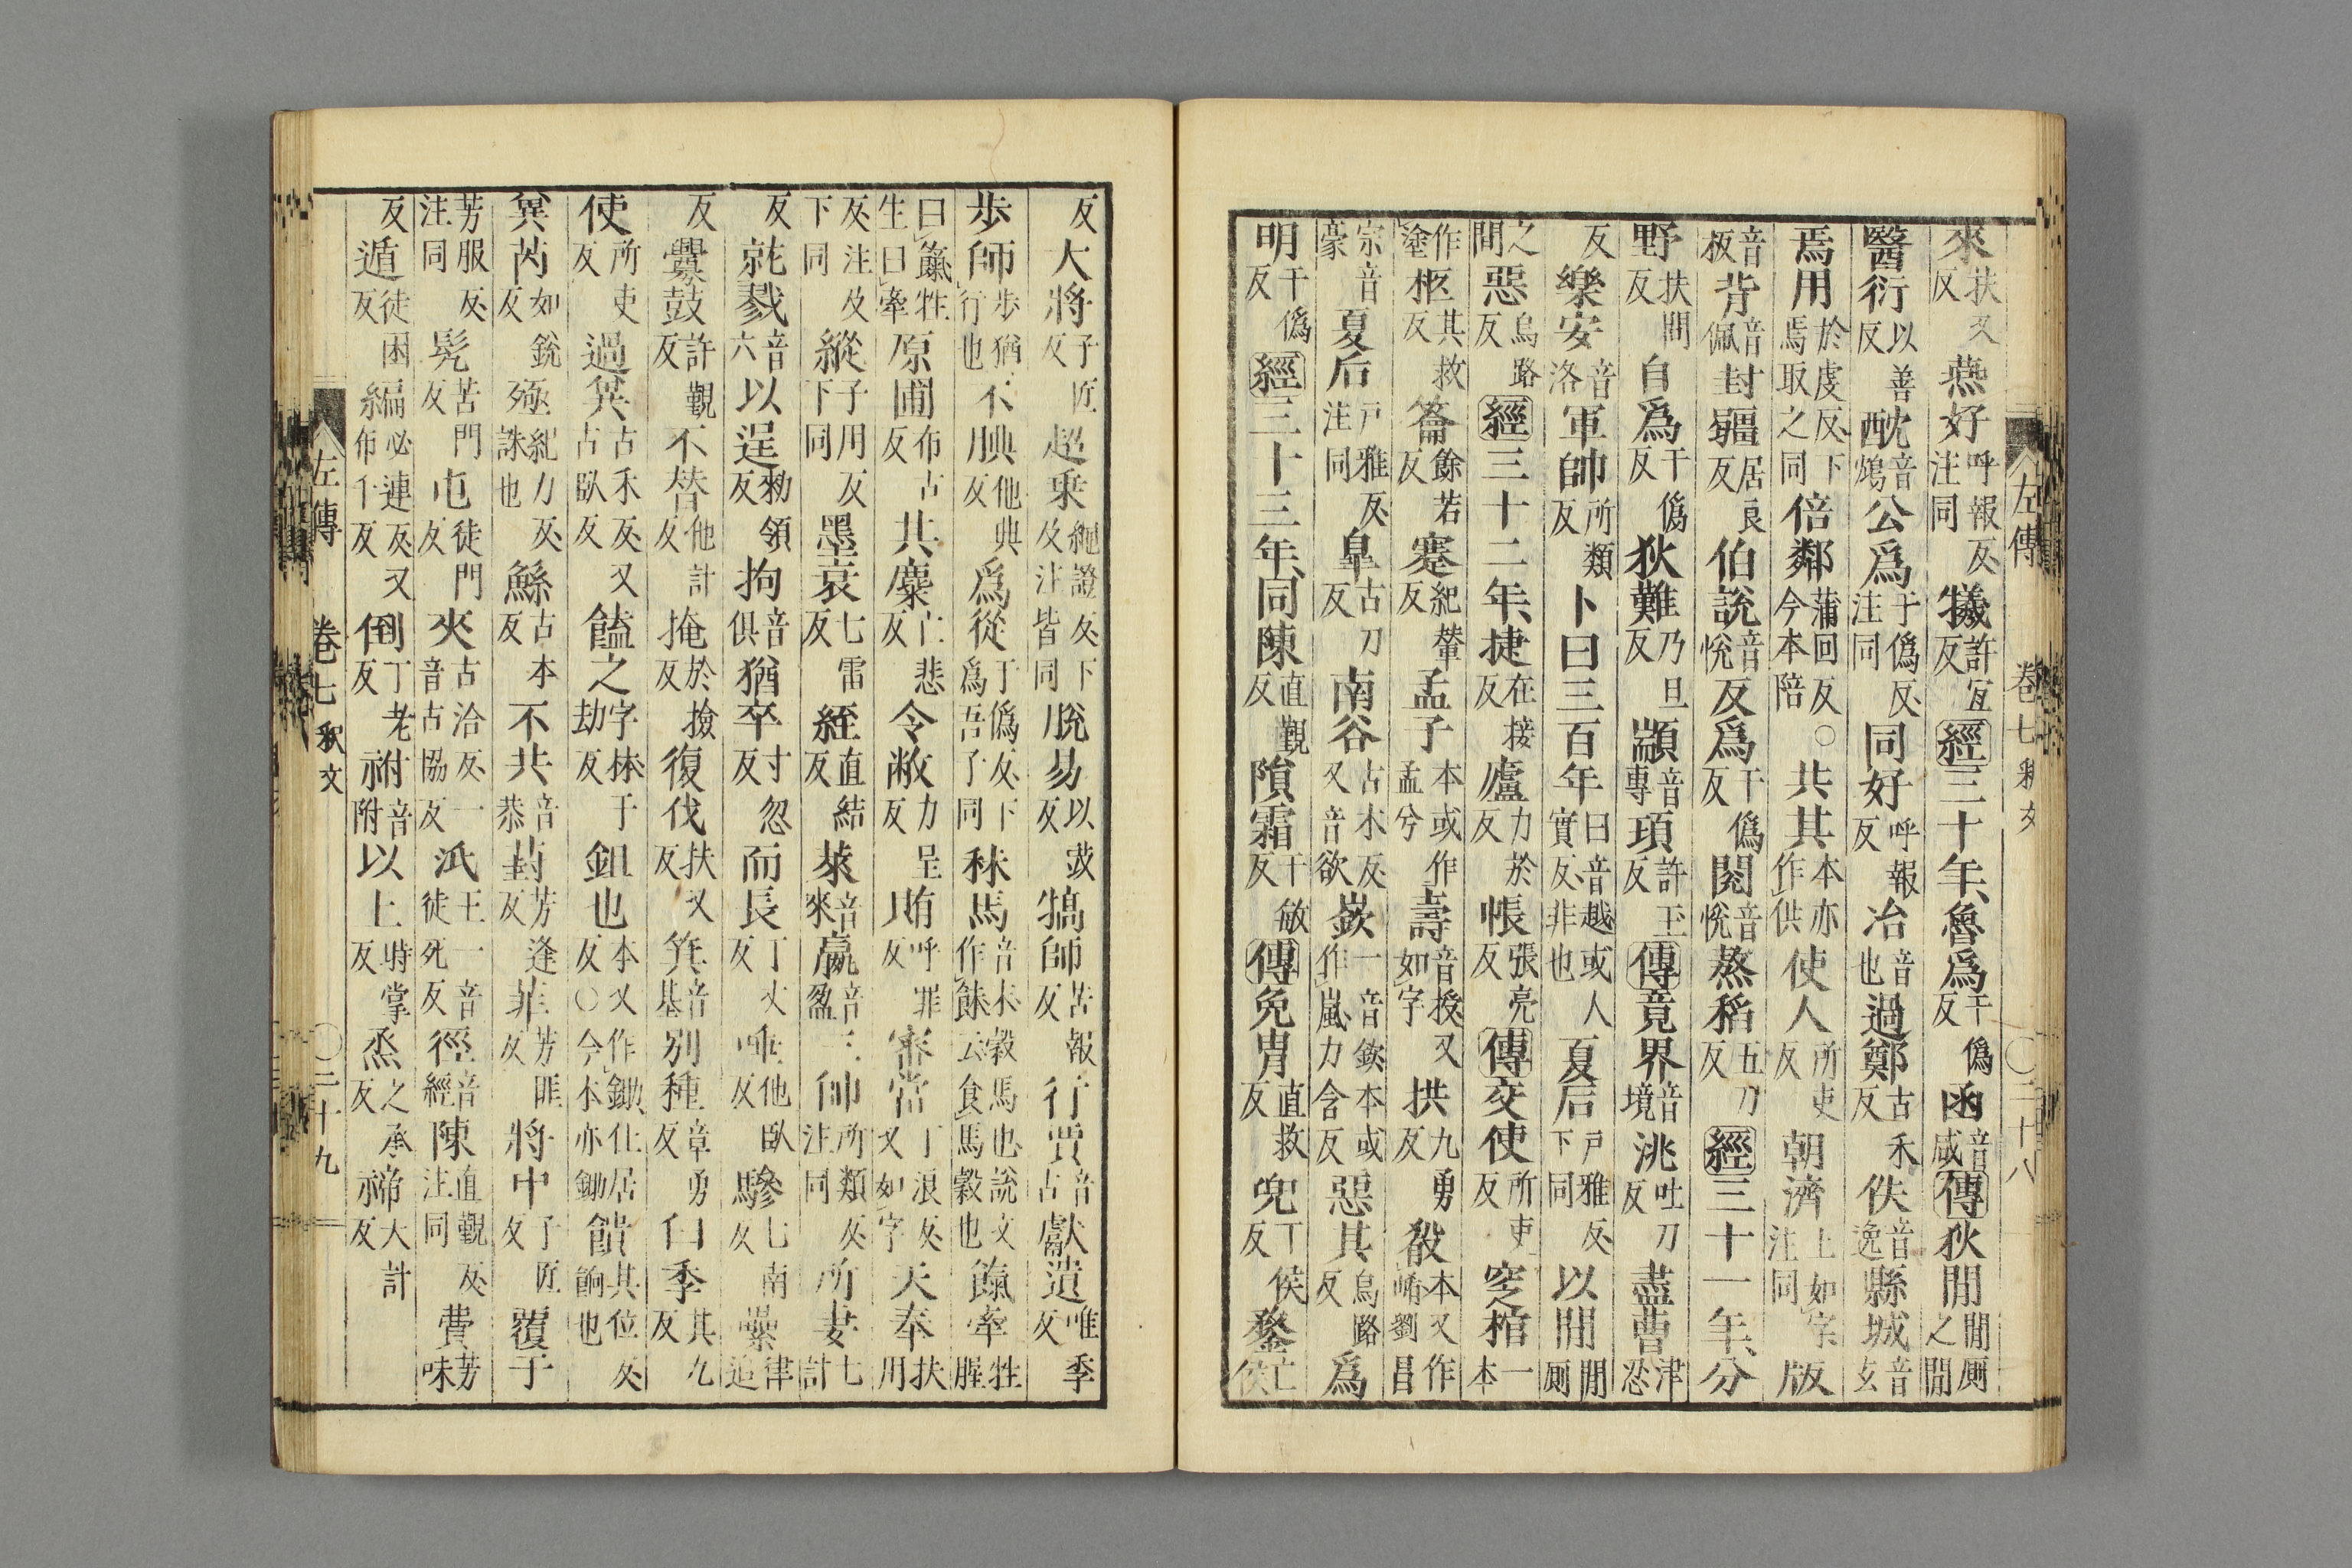 來扶又反燕好呼報反注同犧許宜反經三十年、魯爲于僞反函音咸傳狄閒閒厠之閒
醫衍以善反酖音鴆公爲于僞反注同同好呼報反冶音也過鄭古禾反佚音逸縣城音玄
焉用於虔反下焉取之同倍鄰蒲回反○今本陪共其本亦作供使人所吏反朝濟上如字注同版
音板背音佩封疆居良反伯說音悅反爲于僞反閱音悅熬稻五刀反經三十一年、分
野扶問反自爲于僞反狄難乃旦反顓音專頊許玉反傳竟界音境洮吐刀反盡曹津忍
反樂安音洛軍帥所類反卜曰三百年曰音越或人實反非也夏后戶雅反下同以閒閒厠
之閒惡烏路反經三十二年、捷在接反廬力於反帳張亮反傳交使所吏反窆棺一本
作塗柩其救反籥餘若反蹇紀輦反孟子本或作孟兮壽音授又如字拱九勇反殽本又作崤劉昌
宗音豪夏后戶雅反注同皐古刀反南谷古木反又音欲嶔一音欽本或作嵐力含反惡其烏路反爲
明于僞反經三十三年、同陳直覲反隕霜于敏反傳免冑直救反兜丁侯反鍪亡侯
左傳 卷七釈文 ○二十八
反大將子匠反超乘繩證反下及注皆同脫易以豉反犒師苦報反行賈音古獻遺唯季反
步師步猶行也不腆他典反爲從于僞反下爲吾子同秣馬音末穀馬也說文作䬴云食馬穀也餼牽牲腥
曰餼牲生曰牽原圃布古反共麋亡悲反令敝力呈反賄呼罪反審當丁浪反又如字天奉扶用
反注及下同縱子用反下同墨衰七雷反絰直結反萊音來嬴音盈三帥所類反注同所妻七計
反就戮音六以逞勑領反拘音俱猶卒寸忽反而長丁丈反唾他臥反驂七南反纍律追
反釁鼓許覲反不替他計反掩於撿反復伐扶又反箕音基別種章勇反臼季其九反
使所吏反過冀古禾反又古臥反饁之字林于劫反鉏也本又作鋤仕居反○今本亦鋤饋其位反餉也
冀芮如銳反殛紀力反誅也鯀古本反不共音恭葑芳逢反菲芳匪反將中子匠反覆于
芳服反注同髡苦門反屯徒門反夾古洽反一音古協反泜王一音徒死反徑音經陳直覲反注同費芳味
反遁徒困反編必連反又布千反倒丁老反祔音附以上時掌反烝之承反禘大計反
左傳 卷七釈文 ○二十九